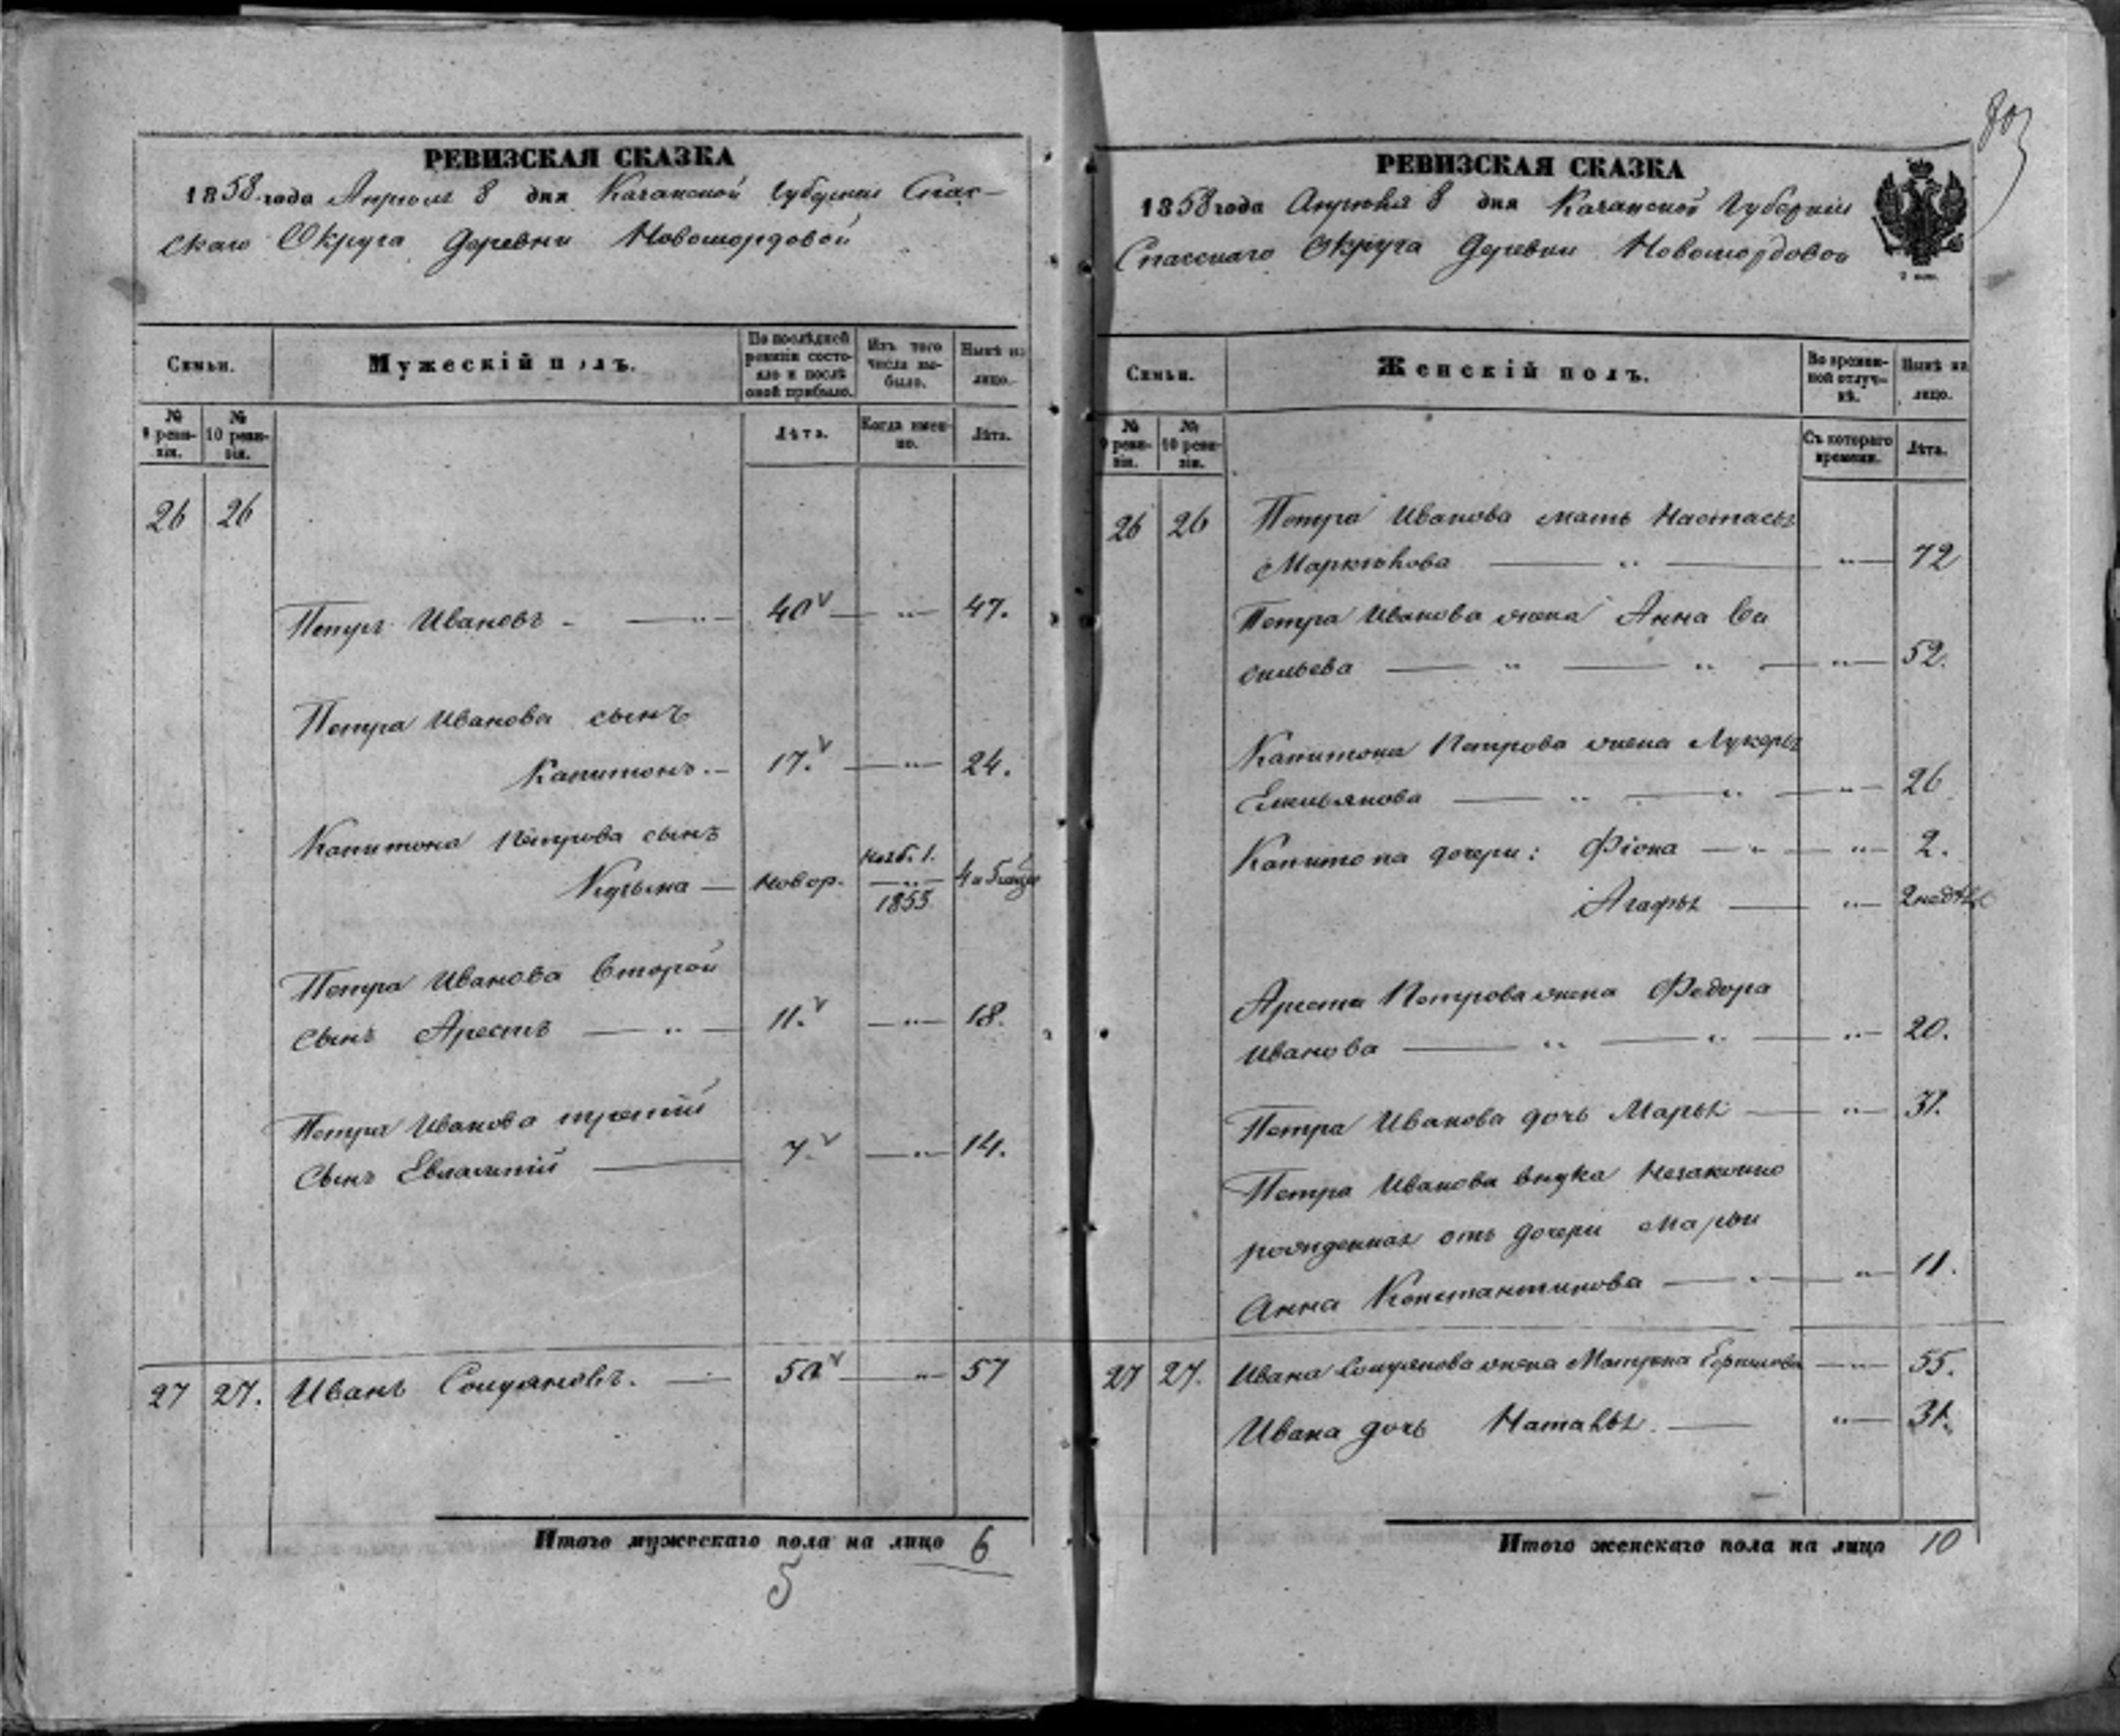 РЕВИЗСКАЯ СКАЗКА
1858 года Апреля 8 дня Казанской Губернии Спас-
скаго Округа Деревни Новомордовой
Семьи.
Мужескій полъ.
По послѣдней ревизіи состояло и послѣ оной прибыло.
Изъ того числа выбыло.
Нынѣ на лицо.
№ 9 ревизіи.
№ 10 ревизіи.
Лѣта.
Когда именно.
Лѣта.
26 26
Петръ Ивановъ - — " — 40 — " — 47.
Петра Иванова сынъ
Капитонъ. — 17. — " — 24.
Капитона Петрова сынъ
Нояб. 1.
Кузьма — Новор. — " — 4 и 5 мѣс
1855
Петра Иванова второй
сынъ Арестъ — " — 11. — " — 18.
Петра Иванова третій
сынъ Евлампій — 7. — " — 14.
27 27. Иванъ — 50 — " — 57
Итого мужескаго пола на лицо 6
5
803
РЕВИЗСКАЯ СКАЗКА
1858 года Апреля 8 дня Казанской Губерніи
Спасскаго Округа Деревни Новомордовой
Семьи.
Женскій полъ.
Во временной отлучкѣ.
Нынѣ на лицо.
№ 9 ревизіи.
№ 10 ревизіи.
Съ котораго времени.
Лѣта.
26 26 Петра Иванова мать Настасья
— " — " — 72
Петра Иванова жена Анна Ва
сильева — " — " — " — 52.
Капитона Петрова жена Лукерья
Емельянова — " — " — " — 26
Капитона дочери: Фіона — " — " — 2.
Агафья — " — 2 недѣл
Ареста Петрова жена Федора
Иванова — " — " — " — 20.
Петра Иванова дочь Марья — " — 31.
Петра Иванова внука незаконно
рожденная отъ дочери Марьи
Анна Константинова — " — " — 11.
27 27. Ивана жена Матрена — " — 55.
Ивана дочь Наталья. — " — 31.
Итого женскаго пола на лицо 10